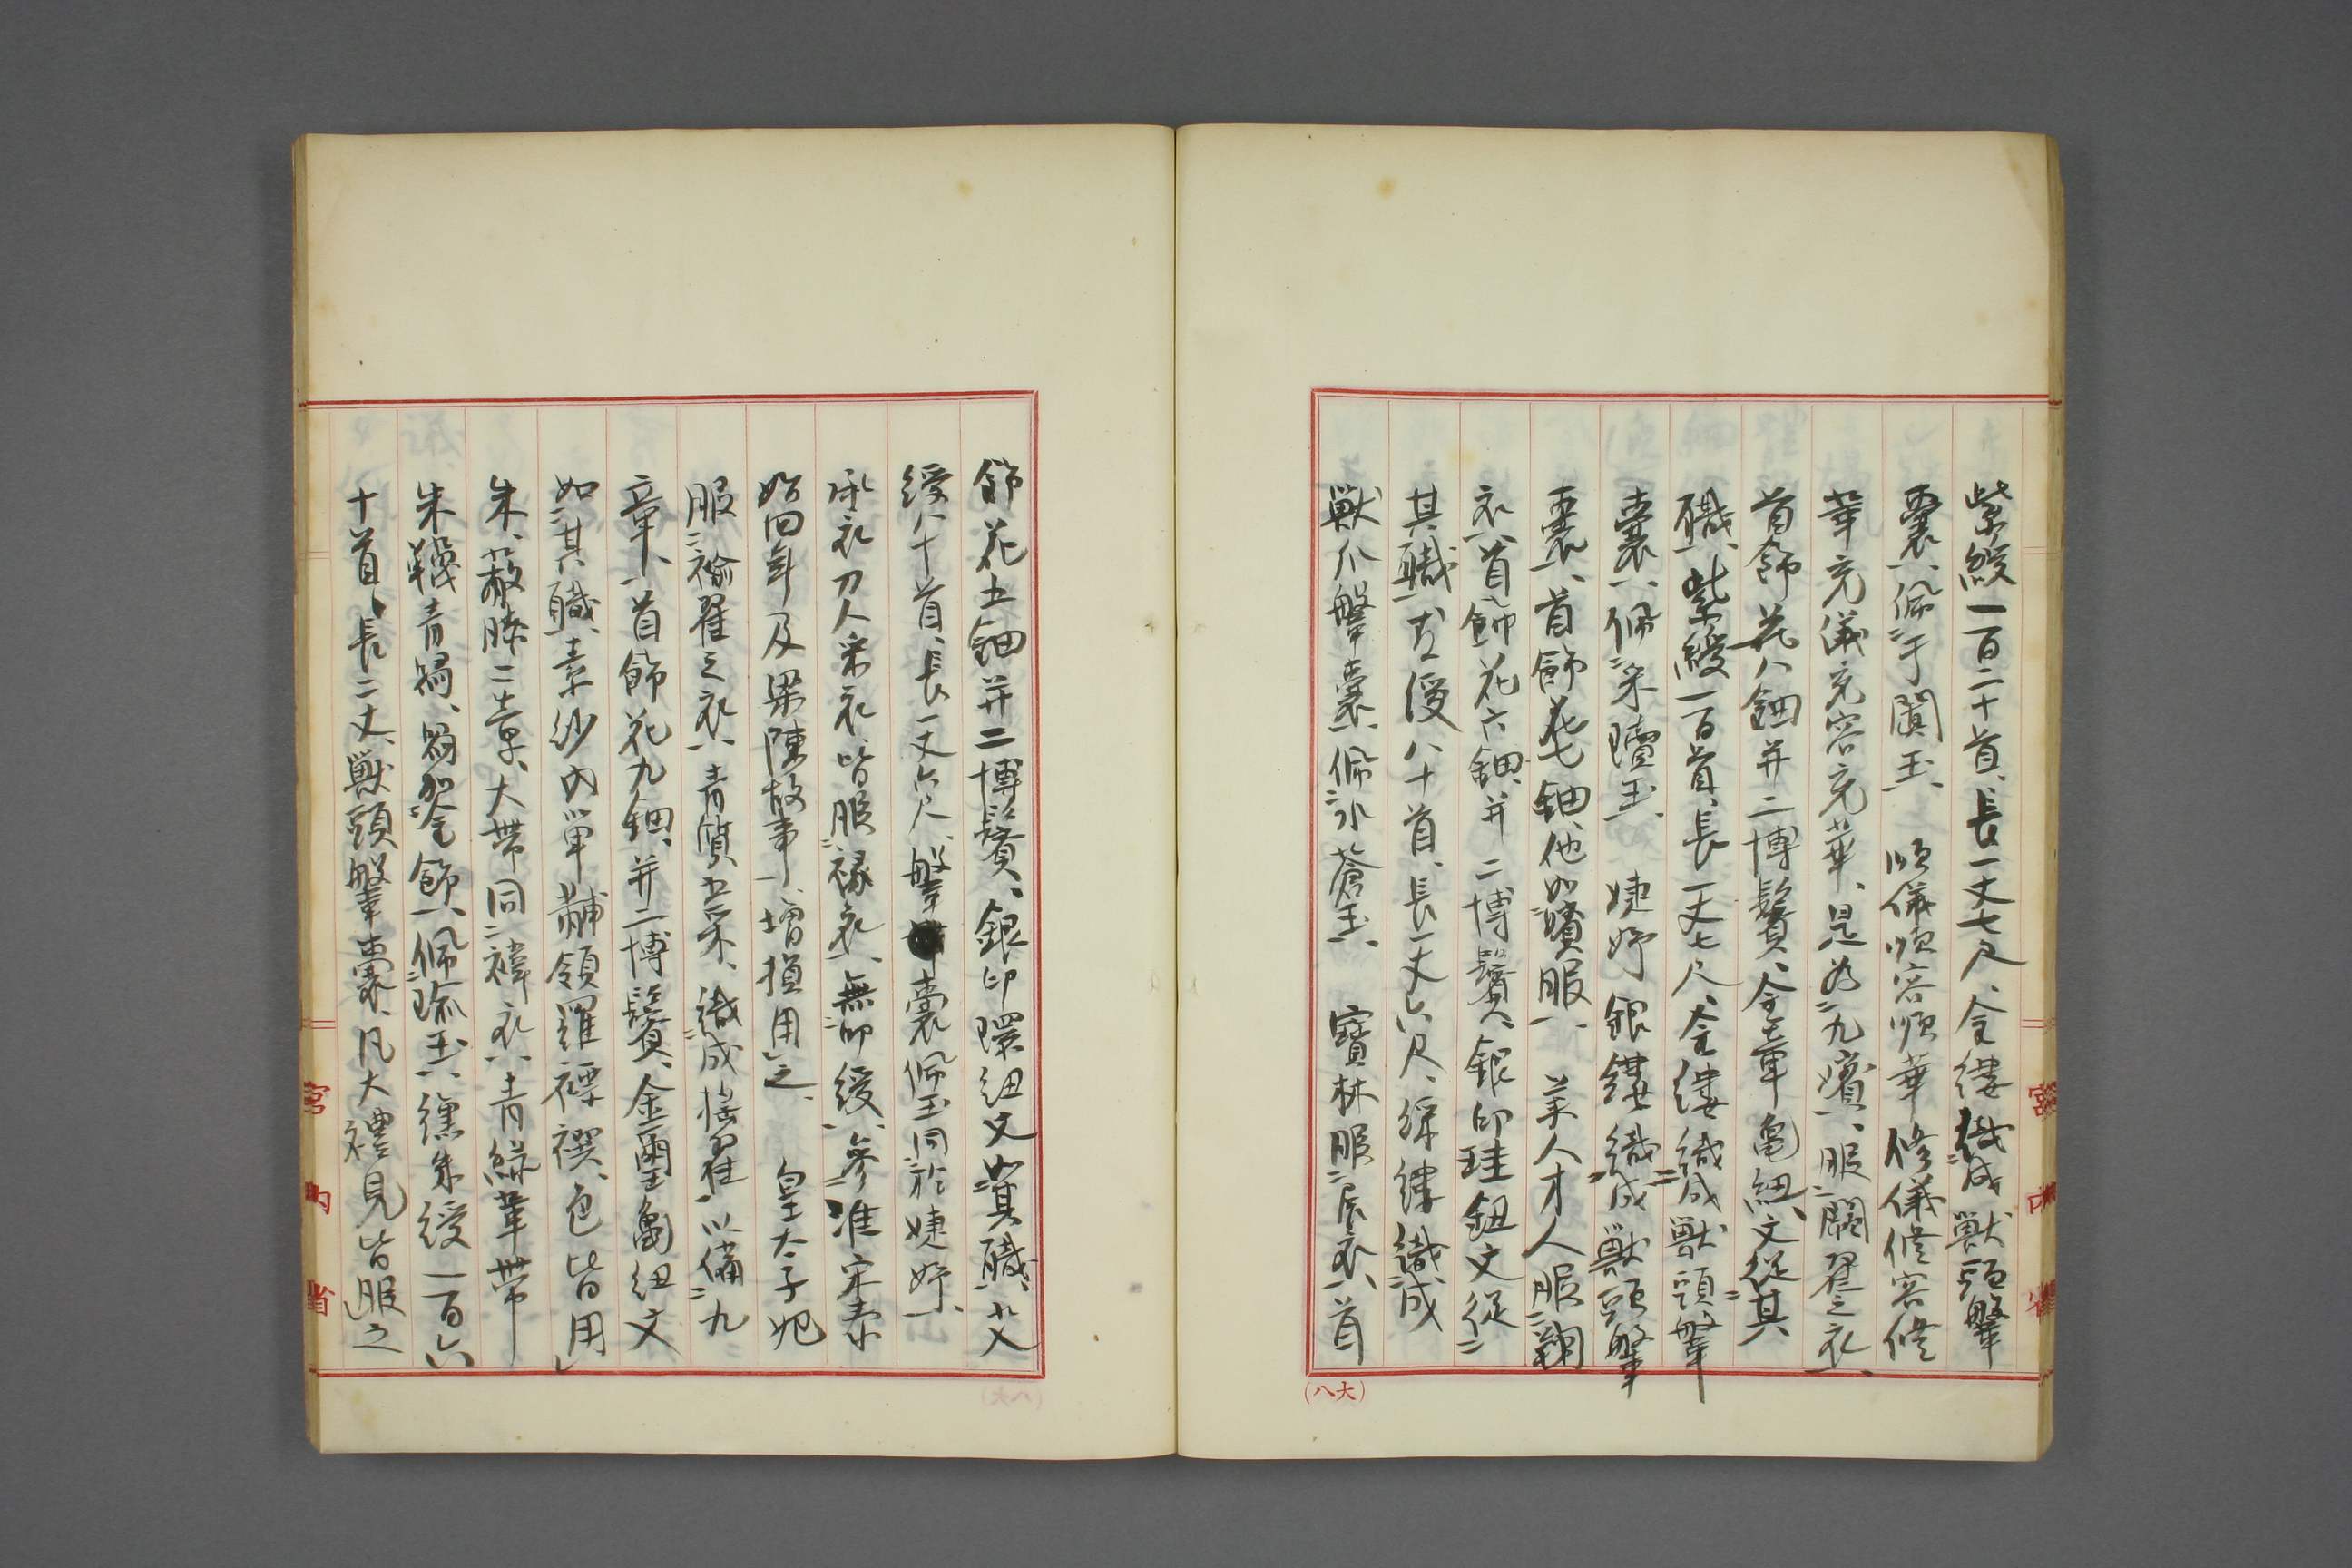 紫綬一百二十首、長一丈七尺、金縷織成獣頭鞶
嚢、佩于闐玉、　順儀順容順華修儀修容修
華充儀充容充華、是為九嬪、服闕翟之衣、
首飾花八鈿并二博鬢、金章亀紐、文從其
職、紫綬一百首、長一丈七尺、金縷織成獣頭鞶
嚢、佩采瓄玉、　婕妤銀鏤織成獣頭鞶
嚢、首飾花七鈿、他如嬪服、　美人才人服鞠
衣、首飾花六鈿、并二博鬢、銀印珪鈕文從
其職、青綬八十首、長一丈六尺、綵縷織成
獣爪鞶嚢、佩水蒼玉、　寶林服展衣、首
飾花五鈿并二博鬢、銀印環紐文如其職、艾
綬八十首、長一丈六尺、鞶嚢佩玉同於婕妤、
承衣刀人采衣、皆服褖衣、無印綬、參准宋泰
始四年及梁陳故事、増損用之、　皇太子妃
服褕翟之衣、青質五采、織成揺翟、以備九
章、首飾花九鈿、并二博鬢、金璽亀紐文
如其職、素紗内単黼領羅褾襈、色皆用
朱、蔽膝二章、大帯同褘衣、青緑革帯
朱韈青舄、舄加金飾、佩瑜玉、纁朱綬一百六
十首、長二丈、獣頭鞶嚢、凡大禮見皆服之
宮内省
宮内省
(大八)